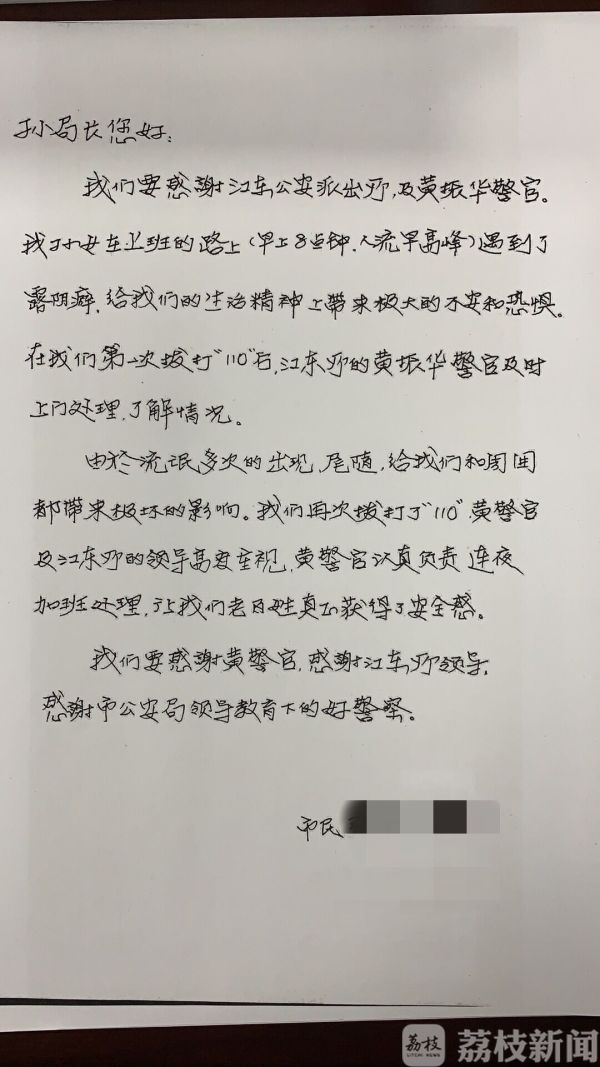 孙局长您好:
我们要感谢江东公安派出所,及黄振华警官。
我小女在上班的路上(早上8点钟.人流早高峰)遇到了
露阴癖.给我们的生活精神上带来极大的不安和恐惧。
在我们第一次拔打"110"后,江东所的黄振华警官及时
上门处理,了解情况。
由於流氓多次的出现,尾随,给我们和周围
都带来极坏的影响。我们再次拔打了"110".黄警官
及江东所的领导高度重视,黄警官认真负责 连夜
加班处理,让我们老百姓真正获得了安全感。
我们要感谢黄警官,感谢江东所领导,
感谢市公安局领导教育下的好警察。
市民
荔枝
LITCHI NEWS
荔枝新闻